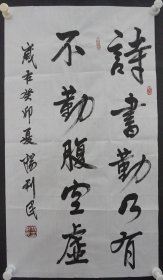 詩書勤乃有
不勤腹空虛
歲在癸卯夏楊利民